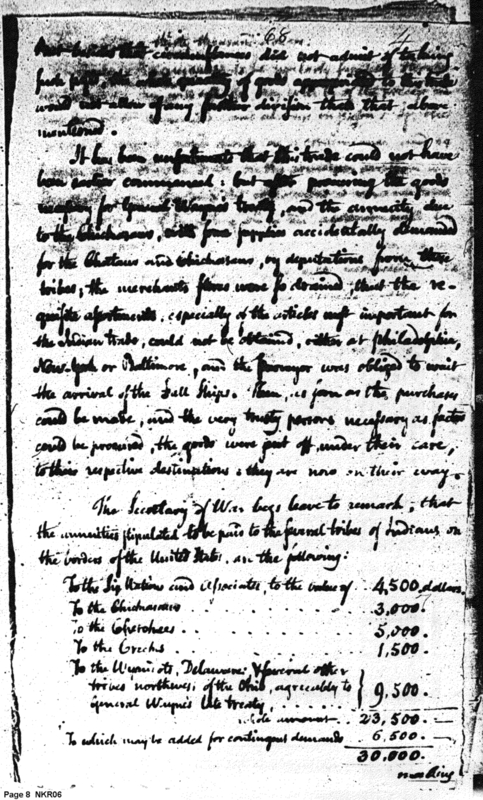 68
circumstances did not admit of its being
the quantity of goods appropriated to the trade
would not allow of any further division than that above
mentioned.
It has been unfortunate that this trade could not have
been earlier commenced: but after procuring the goods
necessary for General Wayne's treaty, and the annuity due
to the Chickasaws, with some supplies accidentally demanded
for the Chataws and Chickasaws, by deputations from these
tribes; the merchants stores were so drained, that the re-
quisite assortments, especially of the articles most important for
the Indian trade, could not be obtained, either at Philadelphia,
New-York or Baltimore, and the Purveyor was obliged to wait
the arrival of the Fall Ships. Then, as soon as the purchases
could be made, and the very trusty persons necessary as factors
could be procured, the goods were sent off under their care,
to their respective destinations; they are now on their way.
The Secretary of War begs leave to remark, that
the annuities stipulated to be paid to the several tribes of Indians on
the borders of the United States, are the following:
To the Six Nations and Associates, to the value of 4,500 dollars.
To the Chickasaws . . . . . 3,000.
To the Cherokees . . . . . 5,000.
To the Creeks . . . . . 1,500.
To the Wyandots, Delawares & several other
tribes northwest of the Ohio, agreeably to } 9,500.
General Wayne's late treaty,
whole amount 23,500. —
To which may be added for contingent demands 6,500. —
30,000.
making
Page 8 NKR06